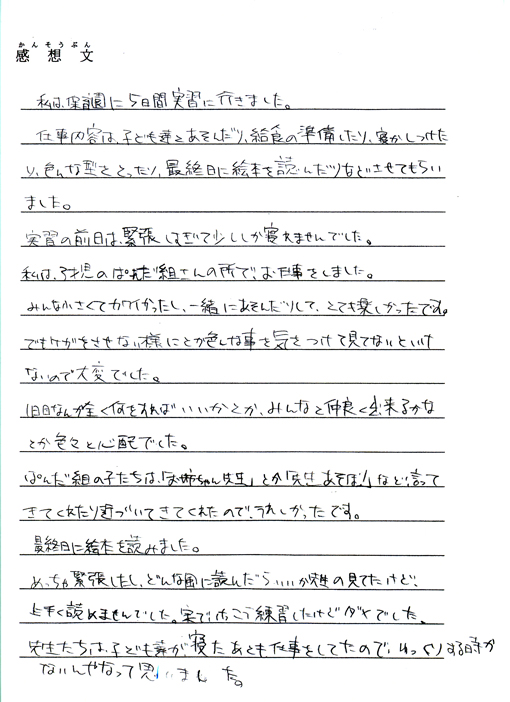 かんそうぶん
感想文
私は、保育園に5日間実習に行きました。
仕事内容は、子ども達とあそんだり、給食の準備したり、寝かしつけた
り、色んな型をとったり、最終日に絵本を読んだりなどさせてもらい
ました。
実習の前日は、緊張しすぎて少ししか寝れませんでした。
私は、3才児のぱんだ組さんの所で、お仕事をしました。
みんな小さくてカワイかったし、一緒にあそんだりして、とても楽しかったです。
でもケガをさせない様にとか色んな事を気をつけて見てないといけ
ないので大変でした。
1日目なんか全く何をすればいいかとか、みんなと仲良く出来るかな
とか色々と心配でした。
ぱんだ組の子たちは、「お姉ちゃん先生」とか「先生あそぼ!」など言って
きてくれたり近づいてきてくれたので、うれしかったです。
最終日に絵本を読みました。
めっちゃ緊張したし、どんな風に読んだらいいか先生の見てたけど、
上手く読めませんでした。家でけっこう練習したけどダメでした。
先生たちは、子ども達が寝たあとも仕事をしてたので、ゆっくりする時が
ないんやなって思いました。